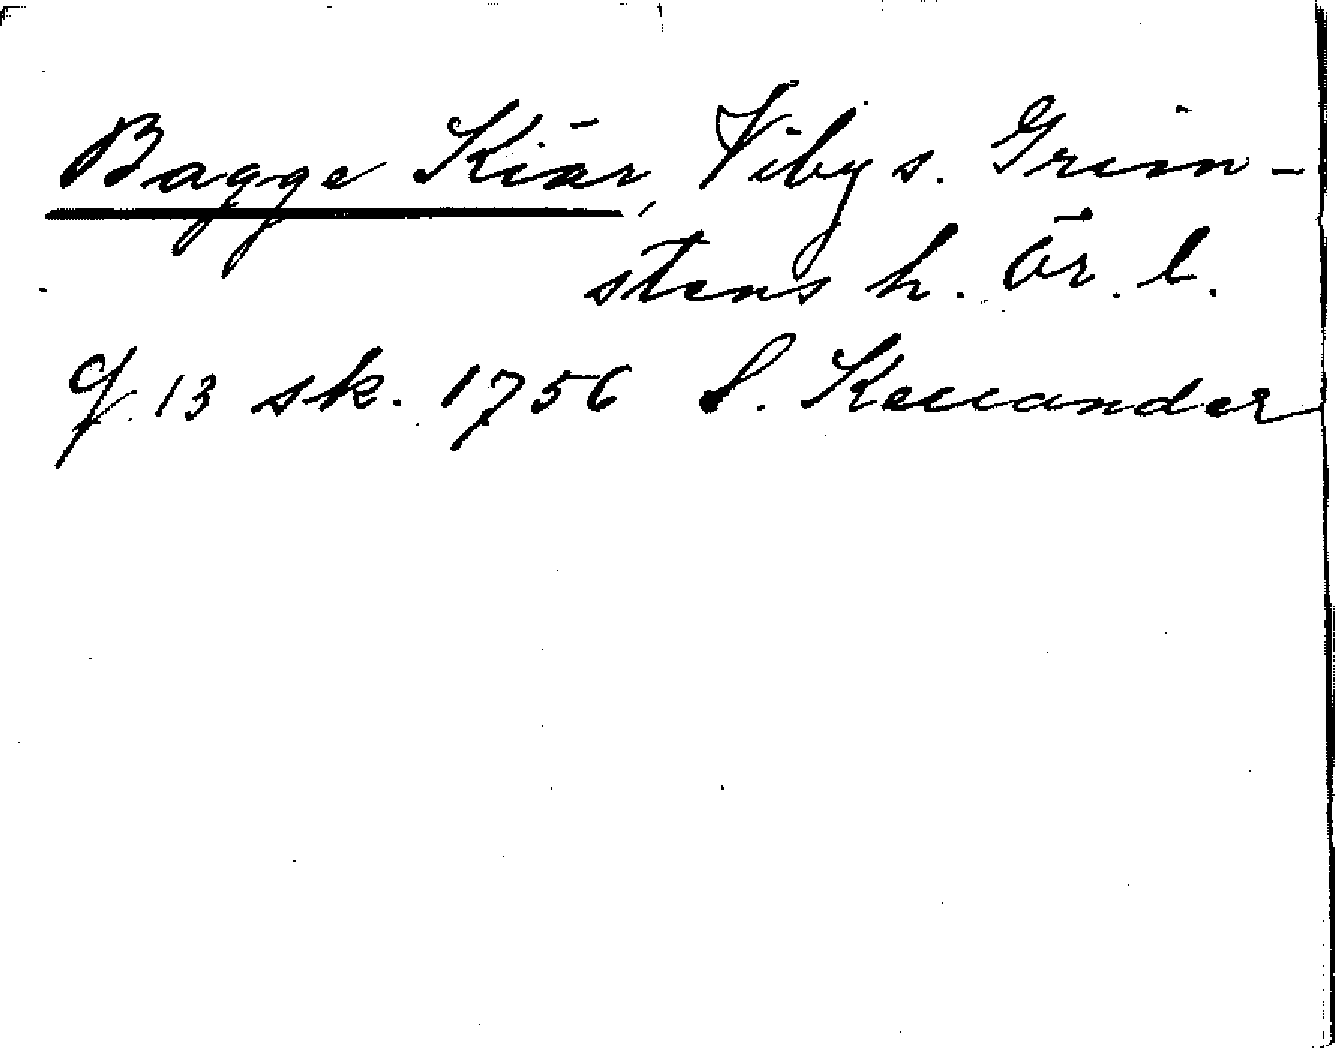 Bagge Kiär, Viby s. Grim-
stens h. Ör. l.
f. 13 sk. 1756 S. Kellander